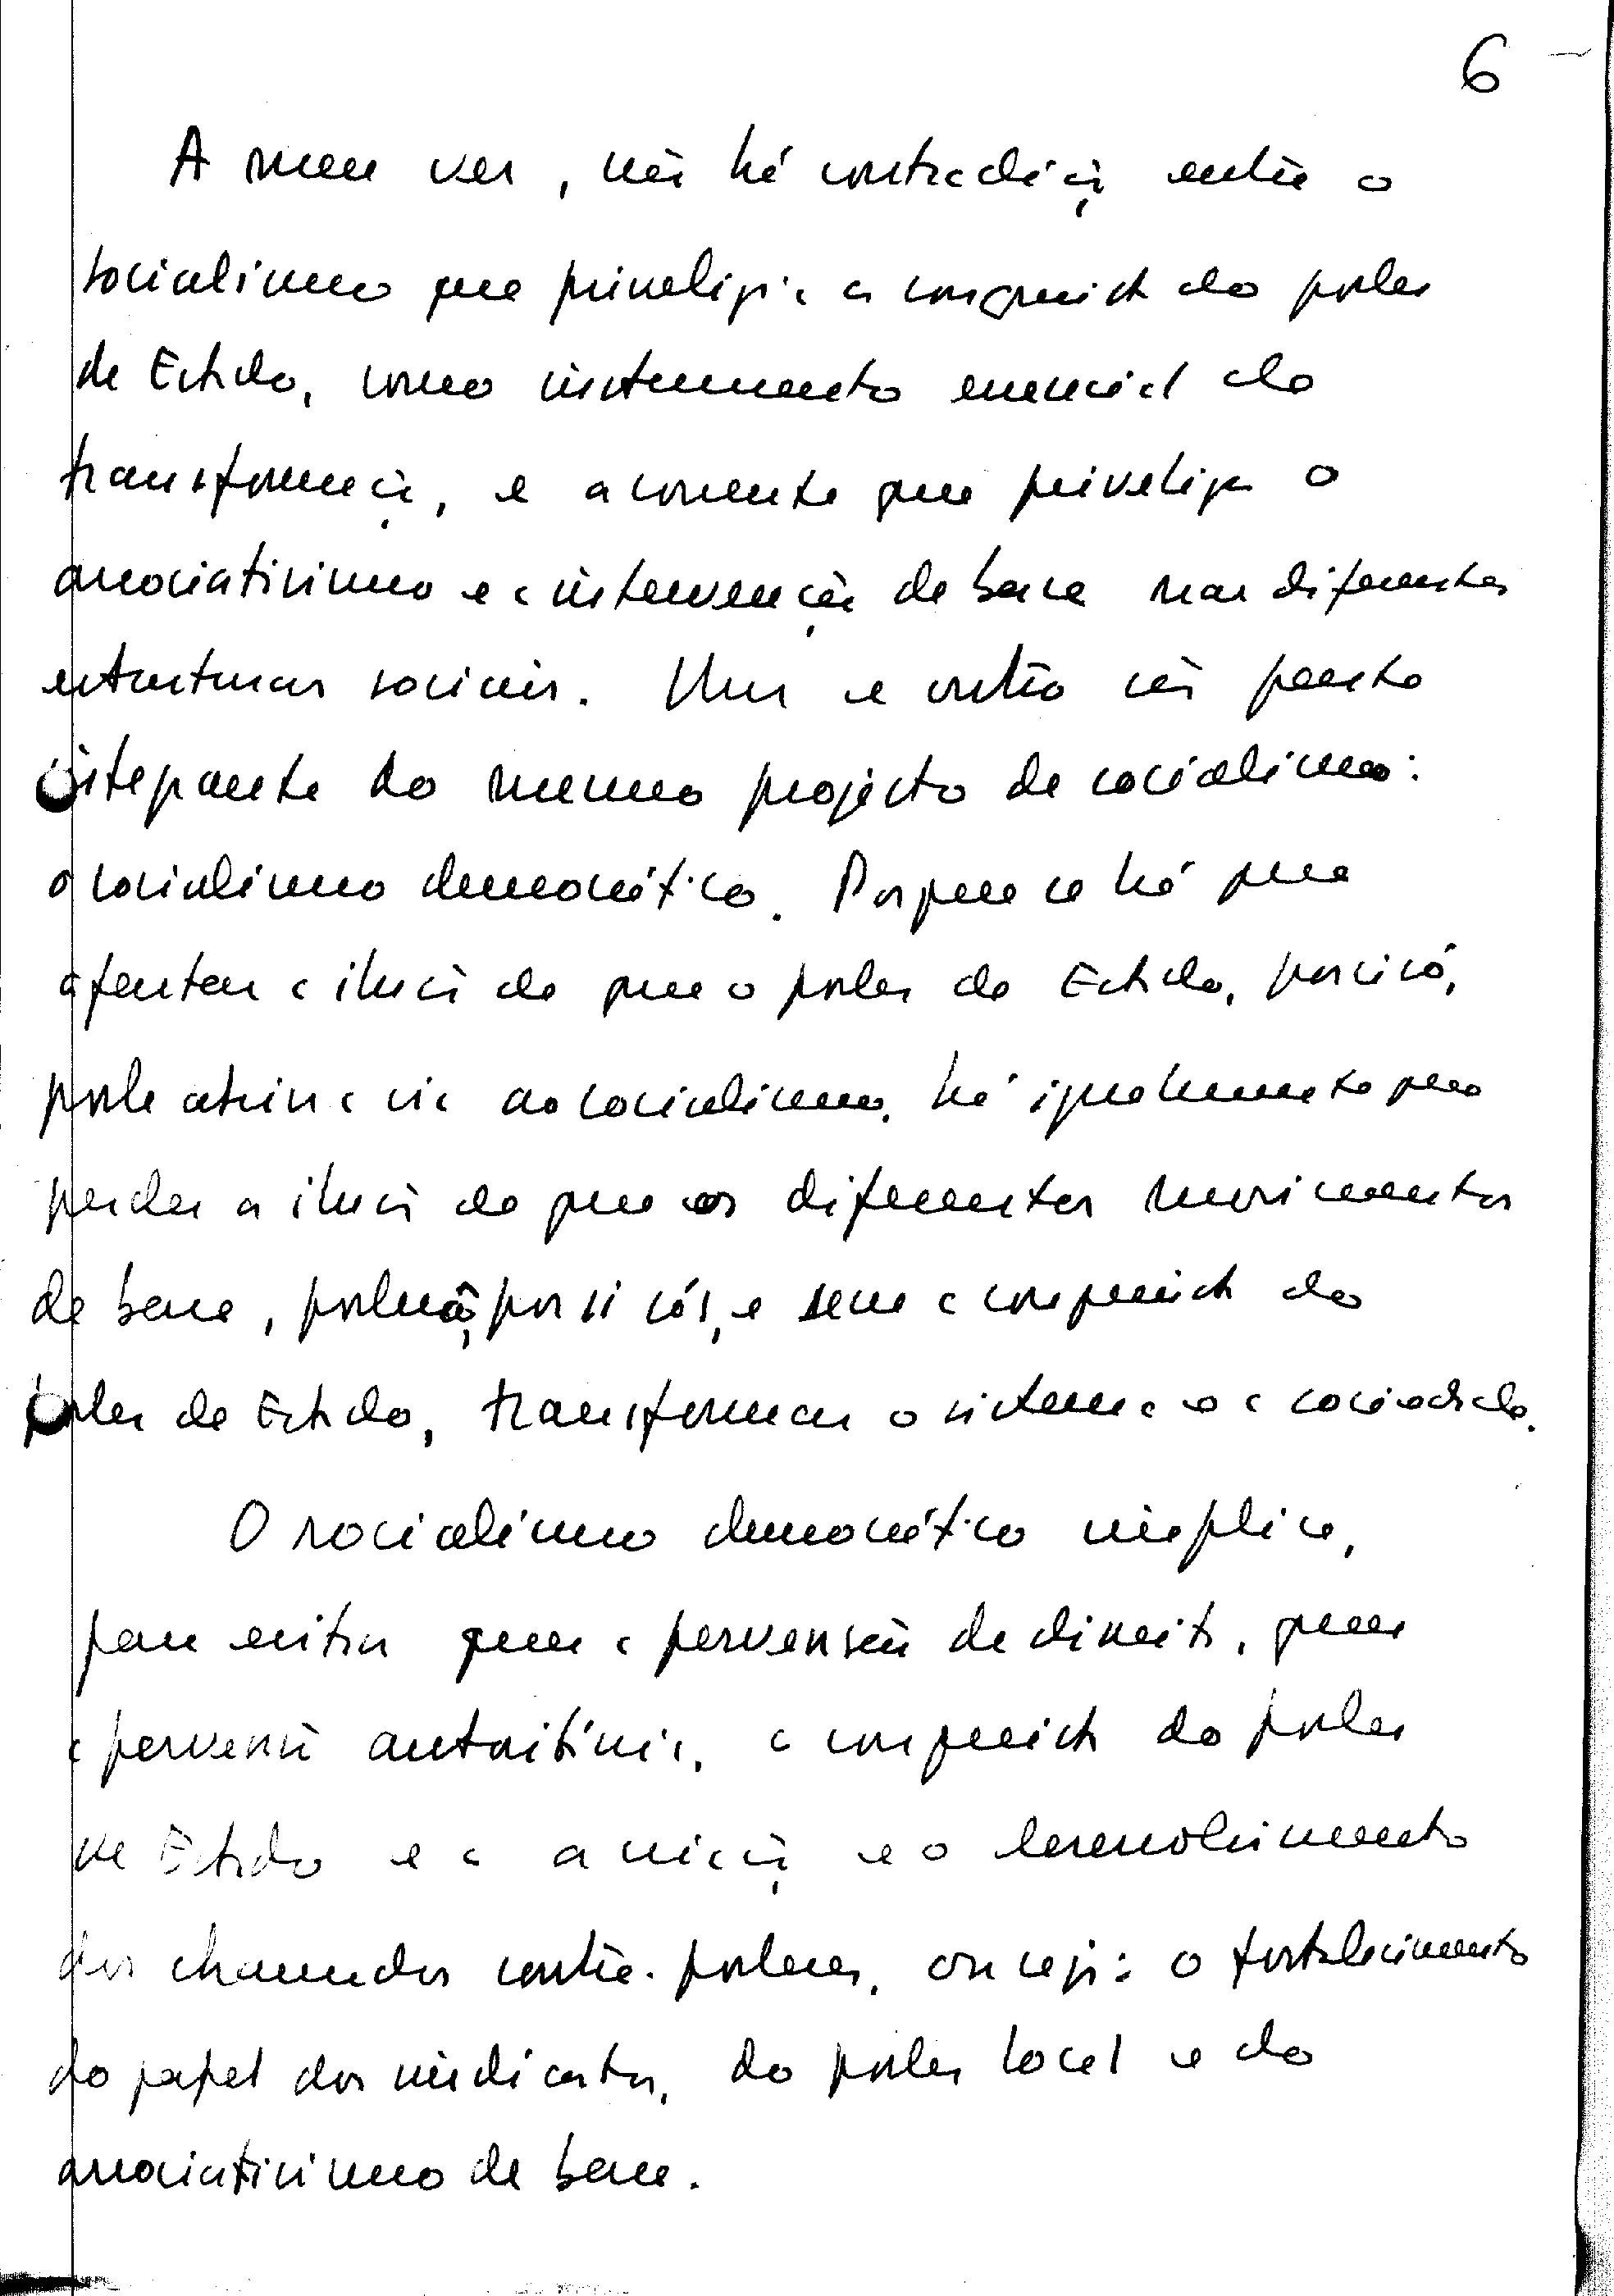 6
A meu ver, não há contradição entre o
socialismo que privilegia a conquista do poder
de Estado, como instrumento essencial de
transformação, e a corrente que privilegia o
associativismo e a intervenção de base nas diferentes
estruturas sociais. Um e outro são parte
integrante do mesmo projecto de socialismo:
o socialismo democrático. Porque se há que
afastar a ilusão de que o poder de Estado, por si só,
pode abrir a via ao socialismo, há igualmente que
perder a ilusão de que os diferentes movimentos
de base, poderão, por si sós, e sem a conquista do
poder de Estado, transformar o sistema e a sociedade.
O socialismo democrático implica,
para evitar quer a perversão de direita, quer
a perversão autoritária, a conquista do poder
de Estado e a criação e o desenvolvimento
dos chamados contra-poderes, ou seja: o fortalecimento
do papel dos sindicatos, do poder local e do
associativismo de base.